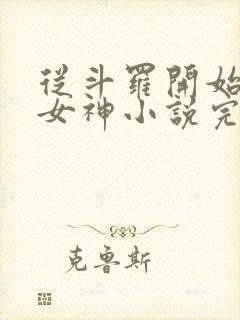 從斗羅開始
女神小說完
克魯斯